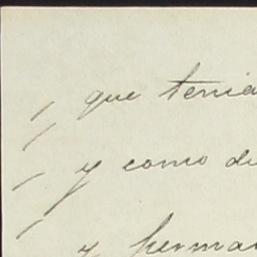 que tenia
y como de
y herman